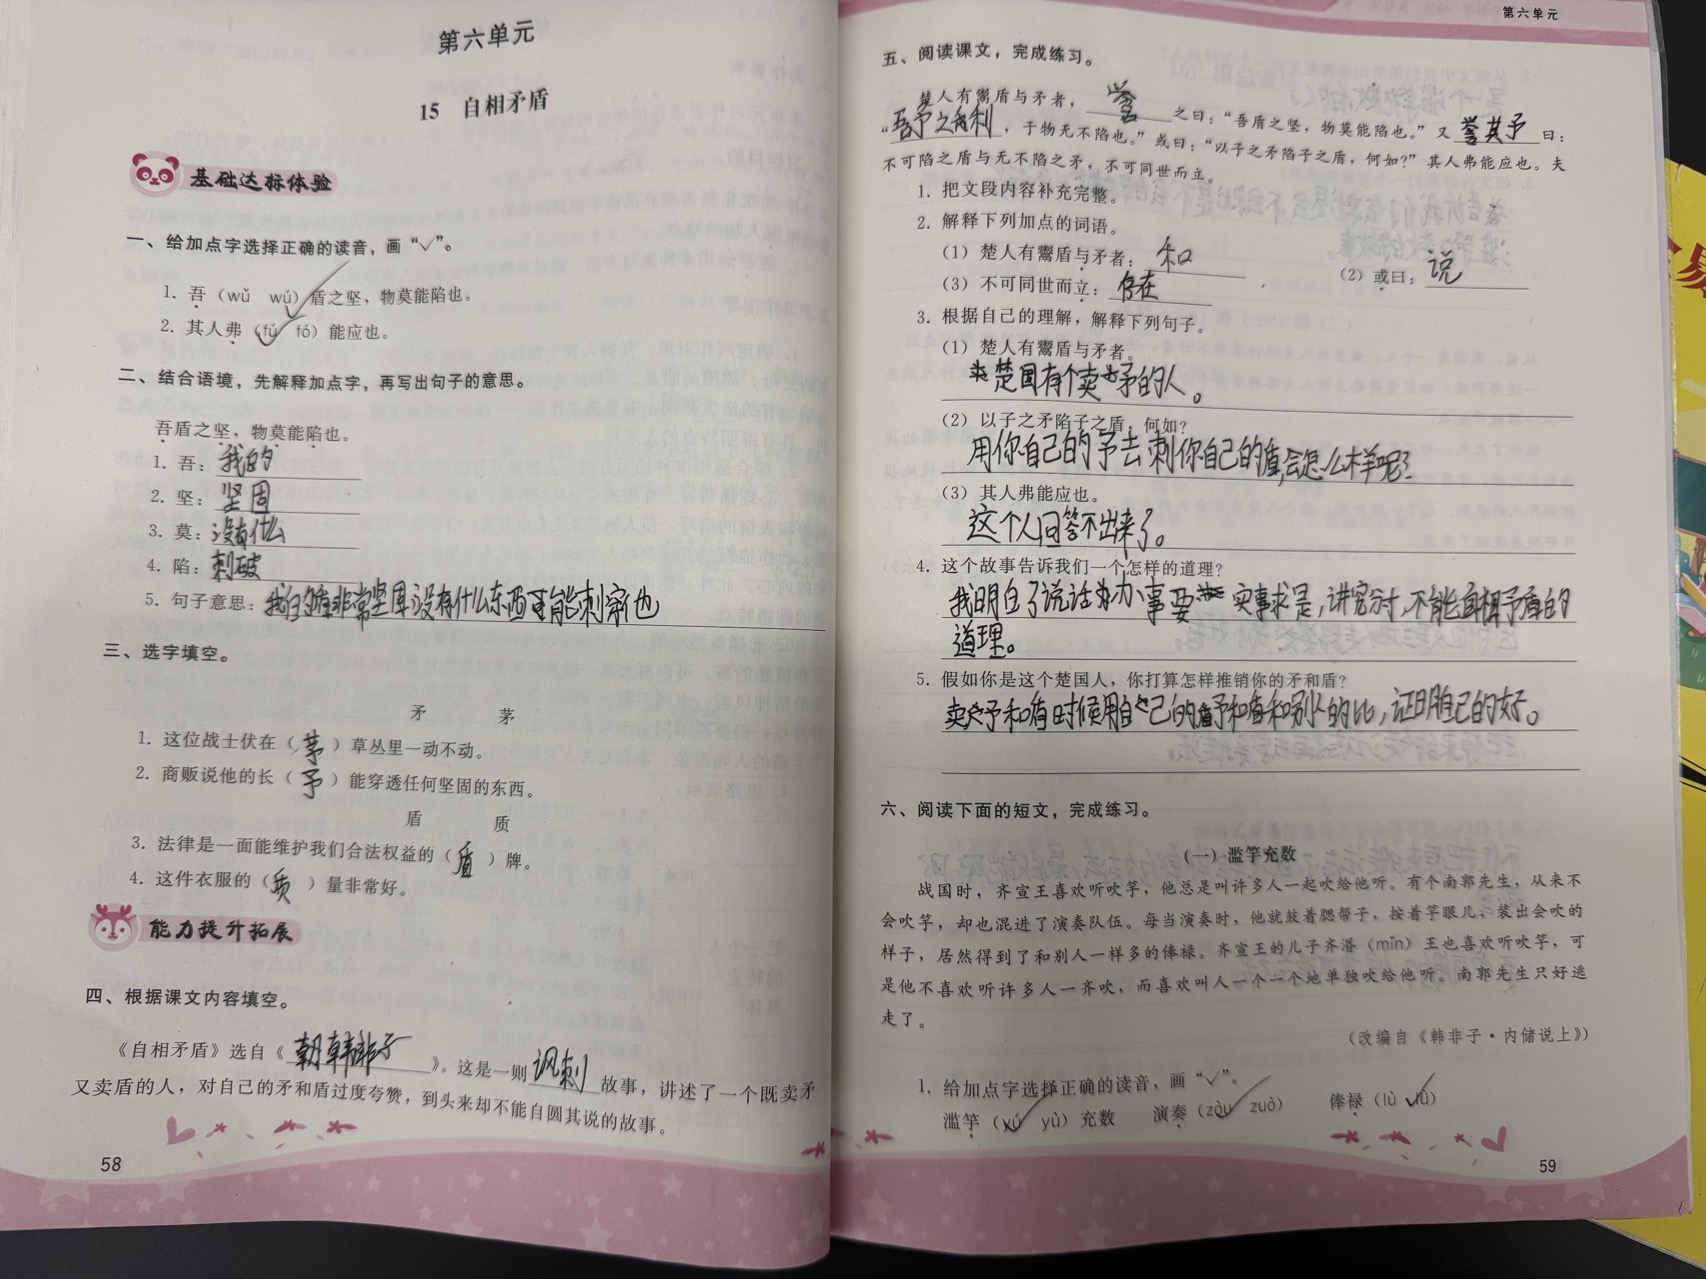 第六单元
15 自相矛盾
基础达标体验
一、给加点字选择正确的读音，画“√”。
1. 吾（wǔ wú）盾之坚，物莫能陷也。
2. 其人弗（fú fó）能应也。
二、结合语境，先解释加点字，再写出句子的意思。
吾盾之坚，物莫能陷也。
1. 吾：我的
2. 坚：坚固
3. 莫：没有什么
4. 陷：刺破
5. 句子意思：我的盾非常坚固没有什么东西可能刺穿也
三、选字填空。
矛 茅
1. 这位战士伏在（茅）草丛里一动不动。
2. 商贩说他的长（予）能穿透任何坚固的东西。
盾 质
3. 法律是一面能维护我们合法权益的（盾）牌。
4. 这件衣服的（质）量非常好。
能力提升拓展
四、根据课文内容填空。
《自相矛盾》选自《韩非子》。这是一则讽刺故事，讲述了一个既卖矛
又卖盾的人，对自己的矛和盾过度夸赞，到头来却不能自圆其说的故事。
58
第六单元
五、阅读课文，完成练习。
楚人有鬻盾与矛者，誉之曰：“吾盾之坚，物莫能陷也。”又誉其予曰：
“吾予之利，于物无不陷也。”或曰：“以子之矛陷子之盾，何如？”其人弗能应也。夫
不可陷之盾与无不陷之矛，不可同世而立。
1. 把文段内容补充完整。
2. 解释下列加点的词语。
（1）楚人有鬻盾与矛者：和 （2）或曰：说
（3）不可同世而立：存在
3. 根据自己的理解，解释下列句子。
（1）楚人有鬻盾与矛者。
楚国有个卖矛的人。
（2）以子之矛陷子之盾，何如？
用你自己的予去刺你自己的盾，会怎么样呢？
（3）其人弗能应也。
这个人回答不出来了。
4. 这个故事告诉我们一个怎样的道理？
我明白了说话办事要实事求是，讲究分寸，不能自相予盾的
道理。
5. 假如你是这个楚国人，你打算怎样推销你的矛和盾？
卖予和盾时候用自己的予和盾和别人的比，证明自己的好。
六、阅读下面的短文，完成练习。
（一）滥竽充数
战国时，齐宣王喜欢听吹竽，他总是叫许多人一起吹给他听。有个南郭先生，从来不
会吹竽，却也混进了演奏队伍。每当演奏时，他就鼓着腮帮子，按着竽眼儿，装出会吹的
样子，居然得到了和别人一样多的俸禄。齐宣王的儿子齐湣（mǐn）王也喜欢听吹竽，可
是他不喜欢听许多人一齐吹，而喜欢叫人一个一个地单独吹给他听。南郭先生只好逃
走了。
（改编自《韩非子·内储说上》）
1. 给加点字选择正确的读音，画“√”。
滥竽（xú yù）充数 演奏（zòu zuò） 俸禄（lù lǜ）
59